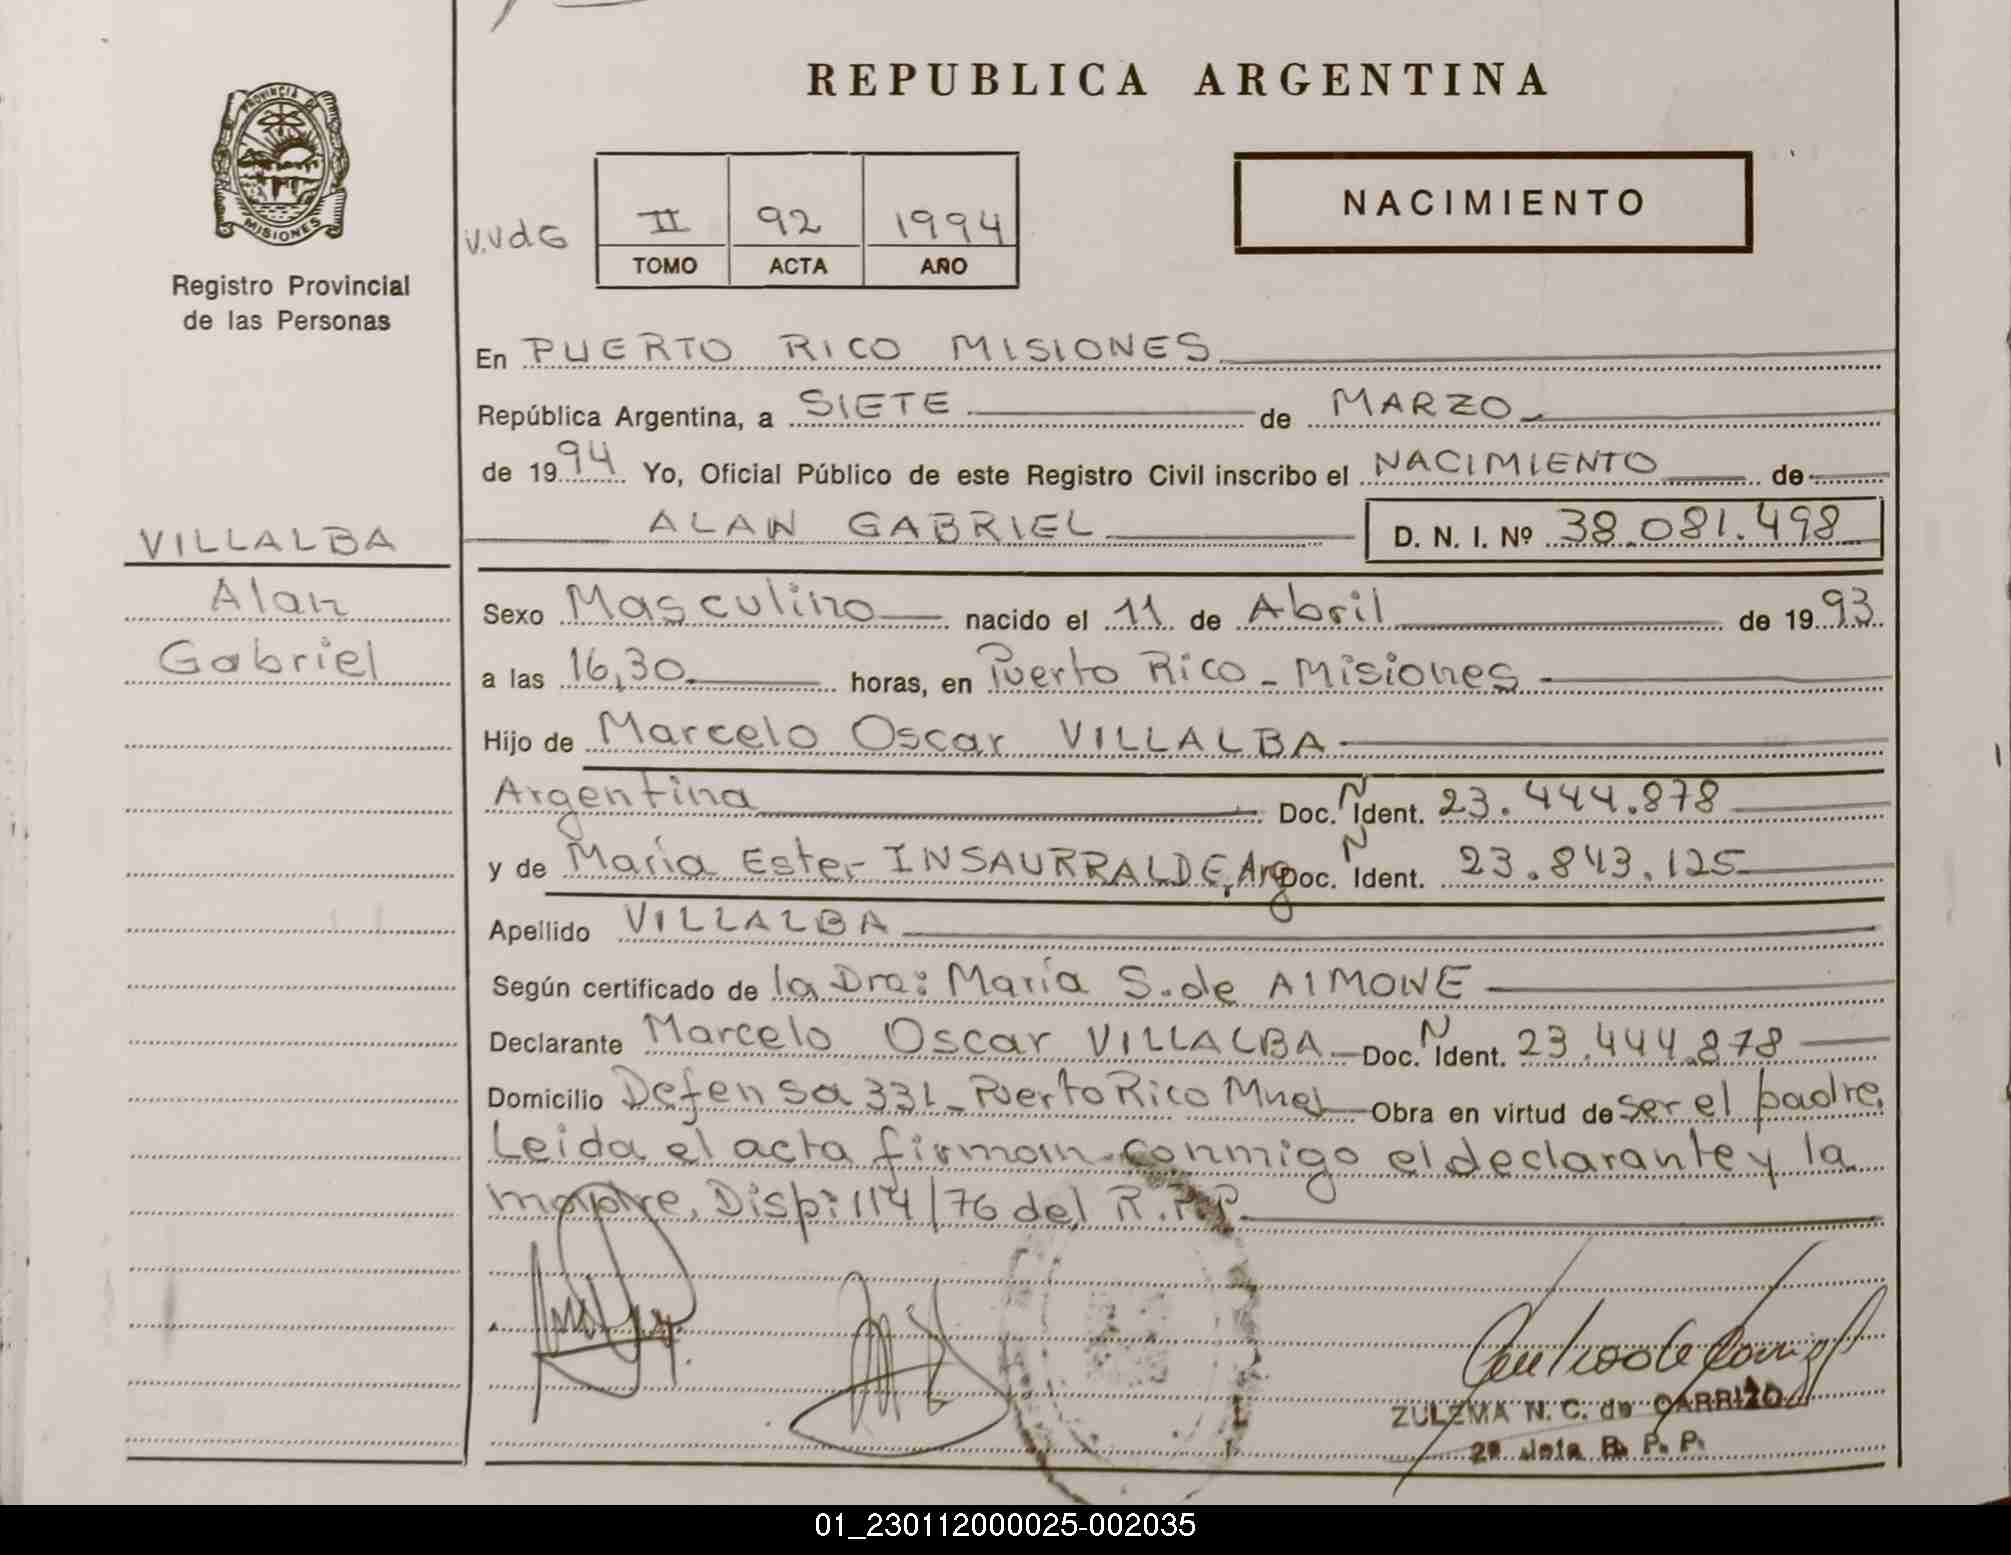 REPUBLICA ARGENTINA
PROVINCIA DE
MISIONES
Registro Provincial
de las Personas
V.VdG
II 92 1994
TOMO ACTA AÑO
NACIMIENTO
En PUERTO RICO MISIONES
República Argentina, a SIETE de MARZO
de 1994 Yo, Oficial Público de este Registro Civil inscribo el NACIMIENTO de
ALAN GABRIEL D. N. I. Nº 38.081.498
VILLALBA
Alan
Gabriel
Sexo Masculino nacido el 11 de Abril de 1993
a las 16,30 horas, en Puerto Rico - Misiones
Hijo de Marcelo Oscar VILLALBA
Argentina Doc. N Ident. 23.444.878
y de María Ester INSAURRALDE, Arg Doc. N Ident. 23.843.125
Apellido VILLALBA
Según certificado de la Dra: María S. de AIMONE
Declarante Marcelo Oscar VILLALBA Doc. N Ident. 23.444.878
Domicilio Defensa 331 - Puerto Rico Mnes Obra en virtud de ser el padre.
Leida el acta firman conmigo el declarante y la
madre. Disp: 114/76 del R.P.P.
ZULEMA N. C. de CARRIZO
2º Jefa R. P. P.
01_230112000025-002035